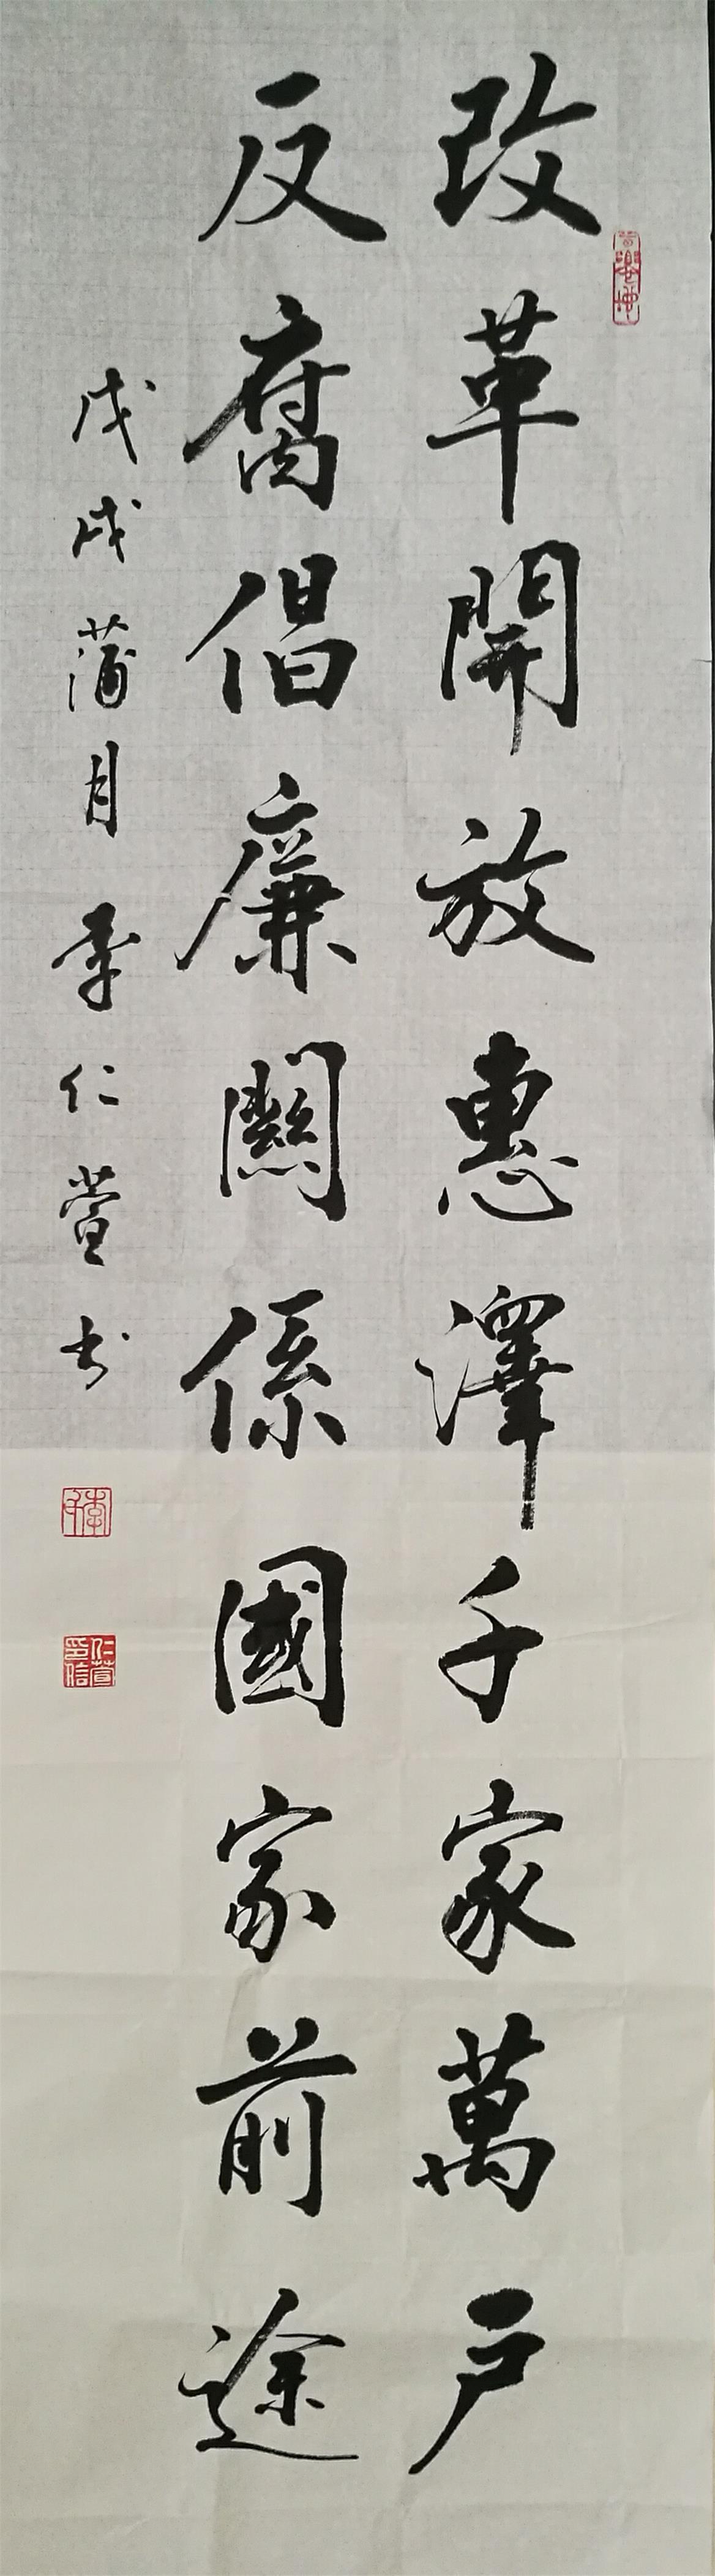 改革開放惠澤千家萬户
反腐倡廉關係國家前途
戊戌蒲月李仁萱书
仁萱印信